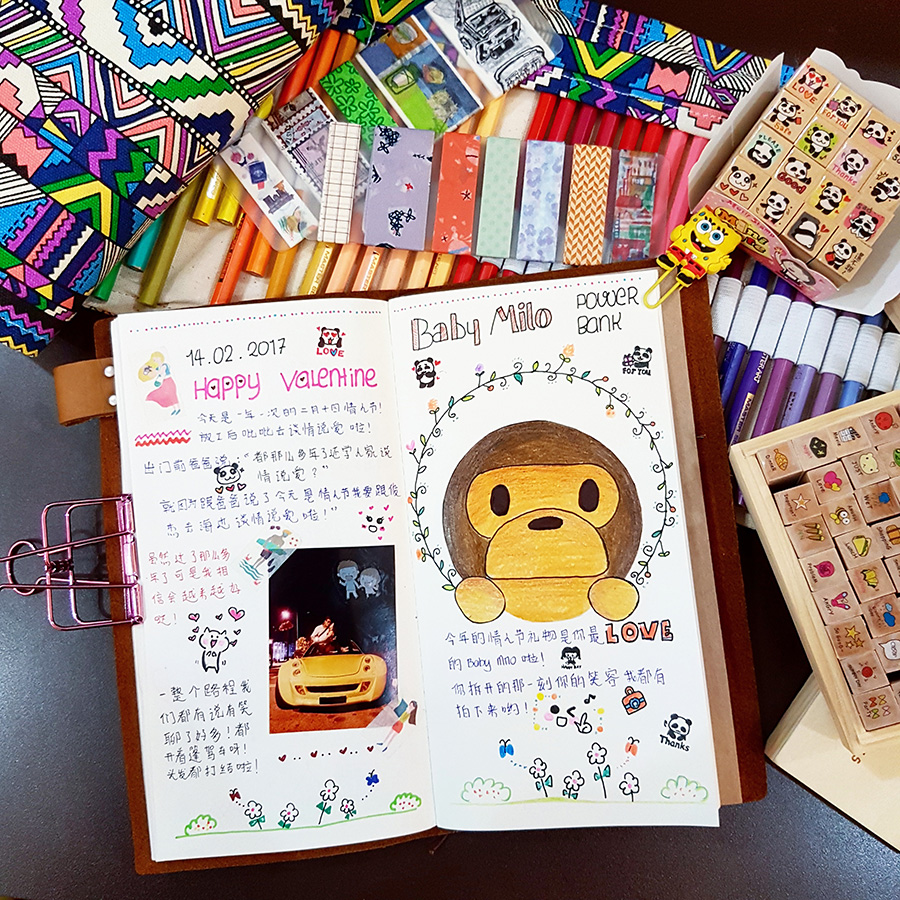 14.02.2017
LOVE
Happy Valentine
今天是一年一次的二月十四情人节!
放工后吡吡去谈情说爱啦!
出门前爸爸说:"都那么多年了还学人家说
情说爱?"
跟爸爸说了今天是情人节我要跟俊
杰去海边谈情说爱啦!"
虽然过了那么多
年了可是我相
信会越来越好
哒!
一整个路程我
们都有说有笑
聊了好多!都
开着篷驾车呀!
头发都打结啦!
Baby Milo
POWER
BANK
FOR YOU
今年的情人节礼物是你最LOVE
的Baby Milo啦!
你拆开的那一刻你的笑容我都有
拍下来哟!
Thanks
LOVE
FOR YOU
Thanks
Good